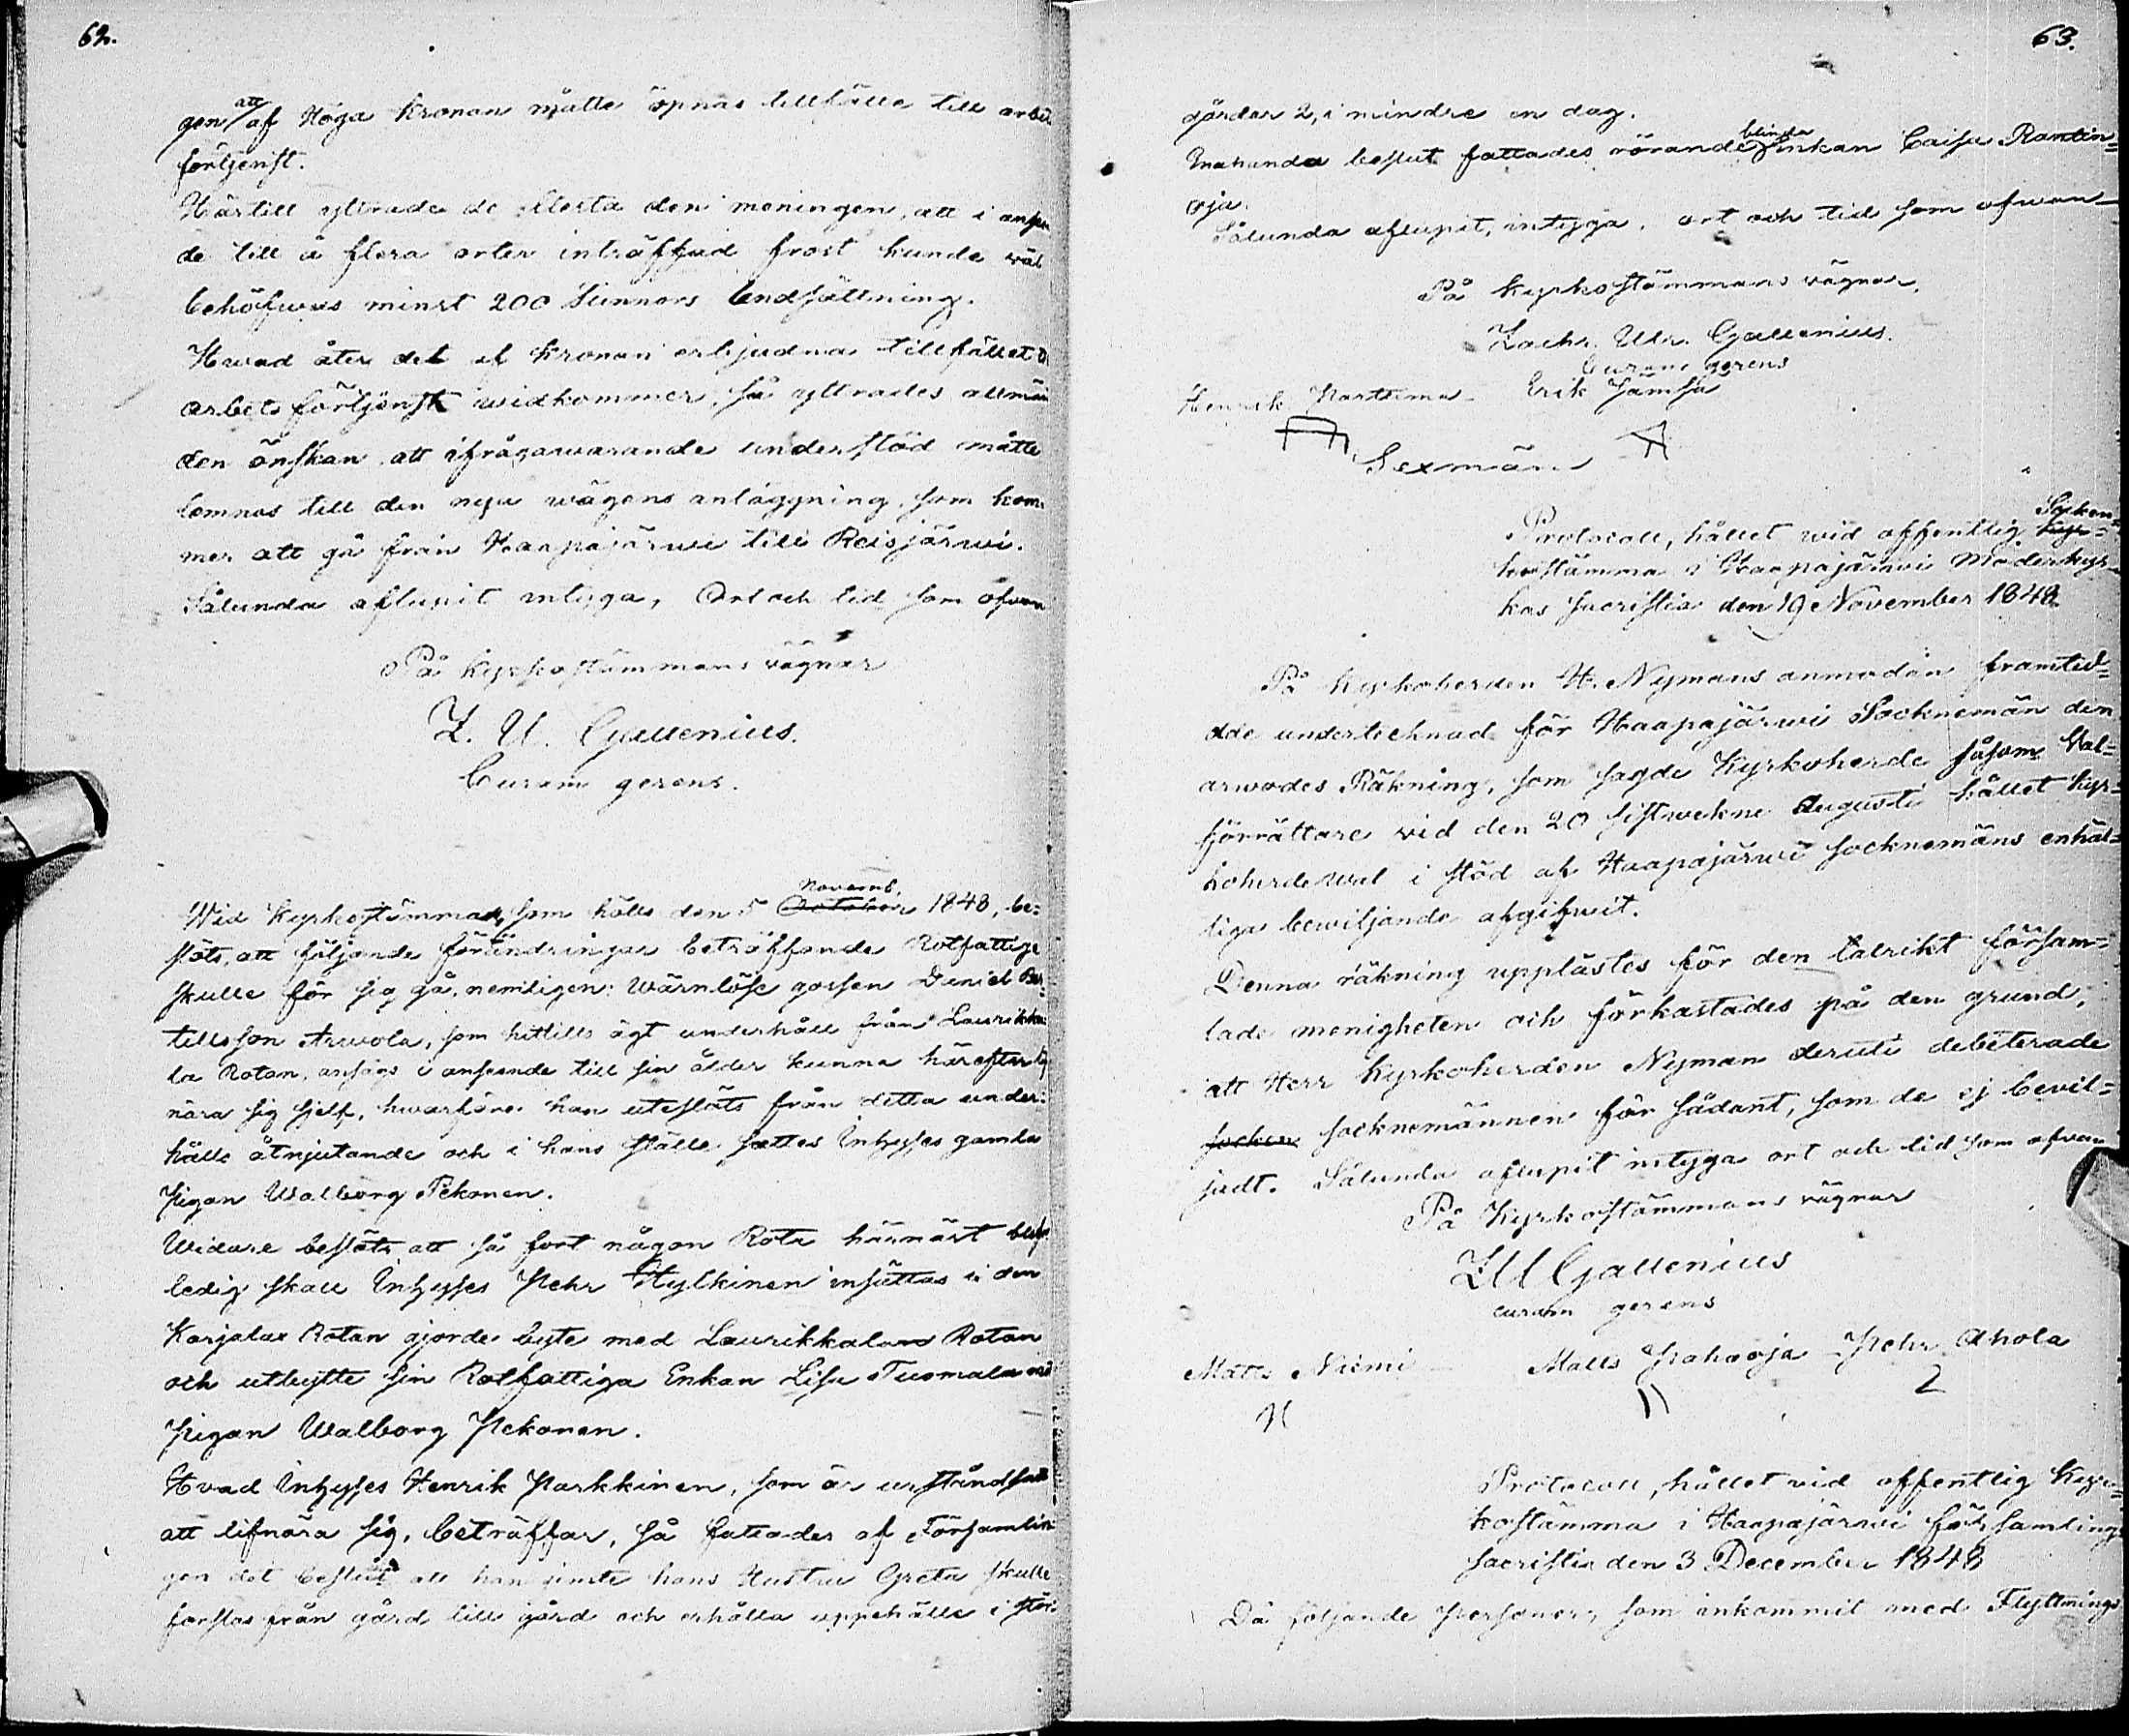 62.
gen att af Höga Kronan måtte öpnas tillfälle till arbets
förtjenst.
Härtill yttrade de flesta den meningen, att i anseen
de till å flera orter inträffad frost kunde väl
behöfwas minst 200 Tunnors Undsättning.
Hwad åter det af Kronan erbjudna tillfället
arbets förtjenst widkommer, så yttrades allmän
den önskan att ifrågawarande understöd måtte
lemnas till den nya wägens anläggning, som kom
mer att gå från Haapajärwi till Reisjärwi.
Sålunda aflupit intyga, Ort och tid som ofvan
På Kyrkostämmans vägnar
Z. U. Gallenius.
Curam gerens.
Wid Kyrkostämman, som hölls den 5 October Novemb. 1848, be=
slöts, att följande förändringar beträffande Rotfattige
skulle för sig gå, nemligen: Wärnlöse gossen Daniel Ber=
tillsson Arwola, som hittills ägt underhåll från Laurikka
la Rotan, ansågs i anseende till sin ålder kunna härefter
nära sig sjelf, hwarföre han uteslöts från detta under=
hålls åtnjutande och i hans ställe sattes Inhyses gamla
Pigan Walborg Pekonen.
Widare beslöts att så fort någon Rote härnäst blef
ledig skall Inhyses Pehr Hylkinen insättas i den
Karjalax Rotan gjorde byte med Laurikkala Rotan
och utbytte sin Rotfattiga Enkan Lisa Tuomala mot
Pigan Walborg Pekonen.
Hvad Inhyses Henrik Parkkinen, som är ur stånd satt
att lifnära sig, beträffar, så fattades af Församlin
gen det beslut att han jemte hans Hustru Greta skulle
forslas från gård till gård och erhålla uppehälle i stör
63.
gårdar 2, i mindre en dag.
Enahanda beslut fattades rörande blinda Pinkan Caisa Rantin=
oja.
Sålunda aflupit, intyga, ort och tid som ofwan
På Kyrkostämmans vägnar,
Zachr. Ulr. Gallenius.
Curam gerens
Henrik Parttima Erik Jämsä
Sexmän
Protocoll, hållet wid offentlig Kyr= Socken=
kostämma i Haapajärwi Moderkyr=
kas Sacristia den 19 November 1848
På Kyrkoherden H. Nymans anmodan framted=
dde undertecknad för Haapajärwi Socknemän den
arwodes Räkning, som sagde Kyrkoherde såsom Val=
förrättare vid den 20 sistvekne Augusti hållet Kyr=
koherdewal i stöd af Haapajärwi socknemäns enhäl=
liga bewiljande afgifwit.
Denna räkning upplästes för den talrikt försam=
lade menigheten och förkastades på den grund,
att Herr Kyrkoherden Nyman deruti debeterade
socken socknemännen för sådant, som de ej bevil=
jadt. Sålunda aflupit intyga ort och tid som ofvan
På Kyrkostämmans vägnar
Z U Gallenius
curam gerens
Matts Niemi Matts Pahaoja Pehr Ahola
Protocoll, hållet vid offentlig Kyr=
kostämma i Haapajärwi församlings
sacristia den 3 December 1848
Då följande personer, som inkommit med Flyttnings